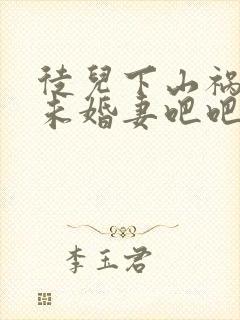 徒兒下山祸
未婚妻吧吧
李玉君